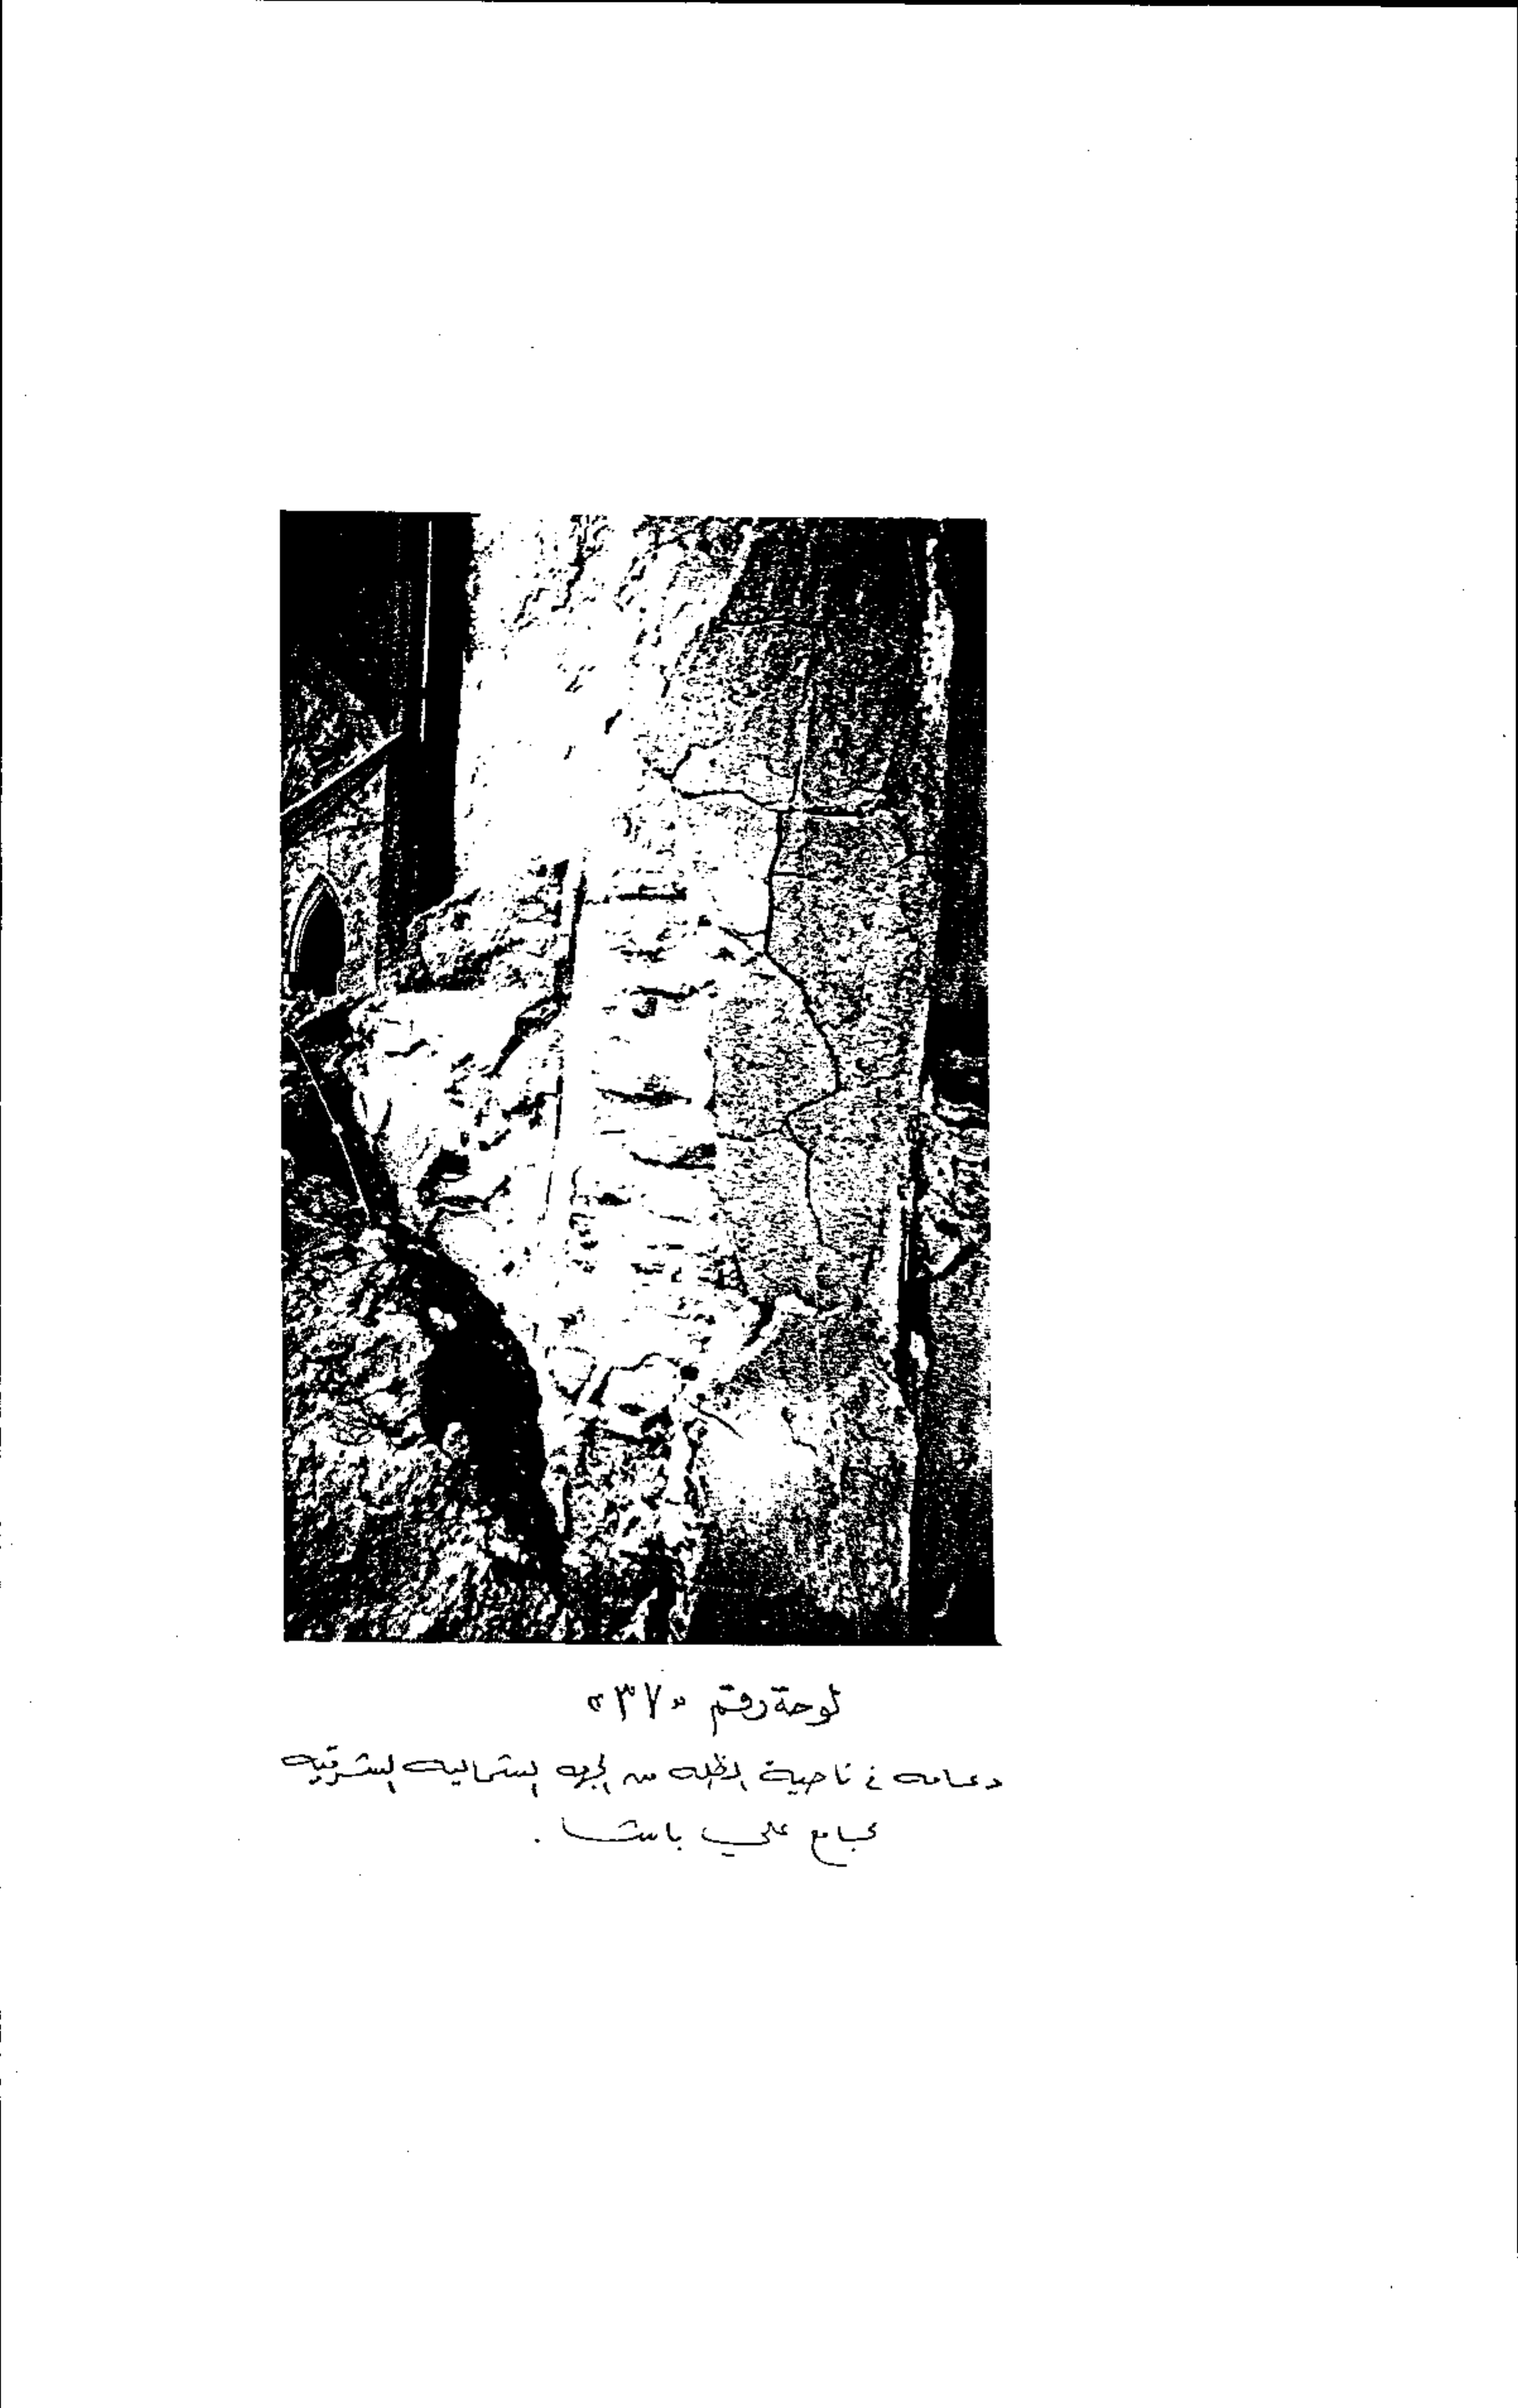 لوحة رقم «٣٧»
دعامه في ناحية الظله من الجهه الشماليه الشرقيه
بجامع علي باشا .